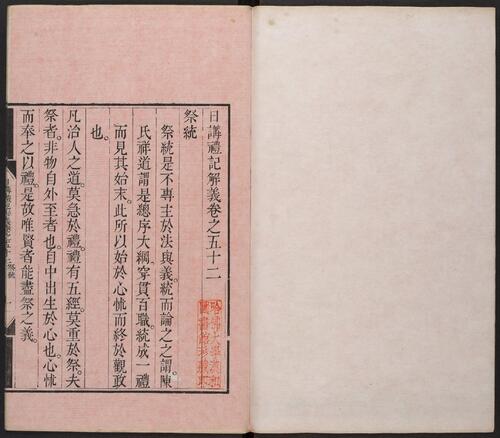 日講禮記解義卷之五十二
祭統
祭統是不專主於法與義統而論之之謂陳
氏祥道謂是總序大綱穿貫百職統成一禮
而見其始末此所以始於心怵而終於觀政
也。
凡治人之道。莫急於禮。禮有五經。莫重於祭。夫
祭者。非物自外至者也。自中出生於心也。心怵
而奉之以禮。是故唯賢者能盡祭之義。
哈佛大學漢和
圖書館珍藏印